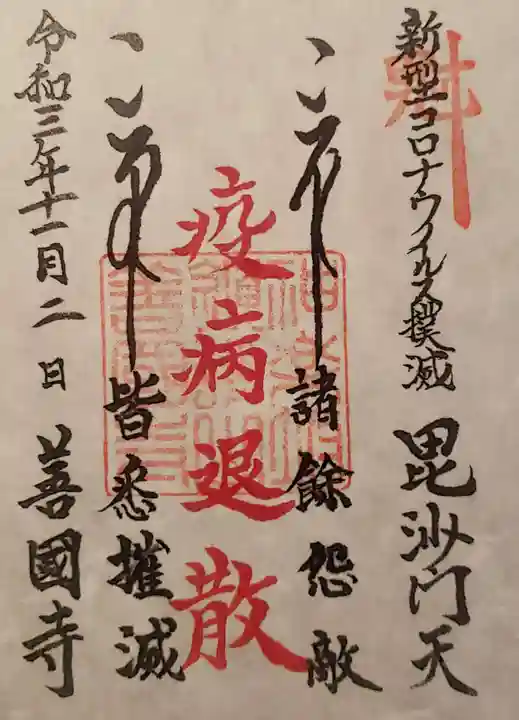 新型コロナウイルス撲滅 毘沙門天
諸餘怨敵
疫病退散
皆悉摧滅
令和三年十一月二日 善國寺